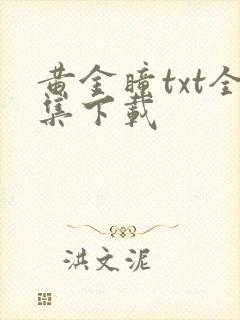 黄金瞳txt全
集下载
洪文泥